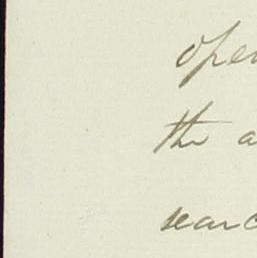 ope
the a
searc